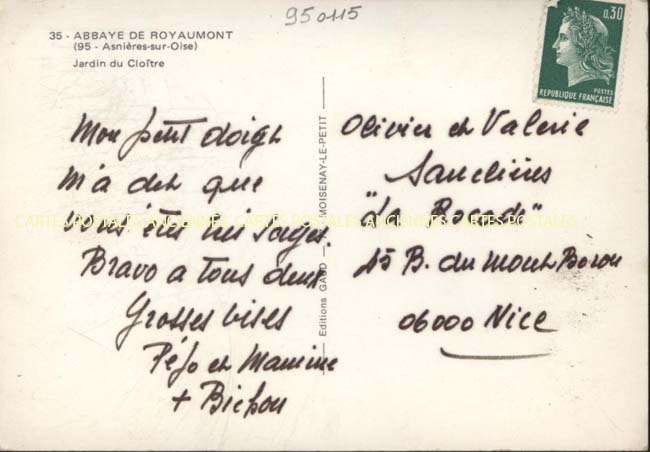 950115
35 - ABBAYE DE ROYAUMONT
(95 - Asnières-sur-Oise)
Jardin du Cloître
0,30
POSTES
REPUBLIQUE FRANÇAISE
Mon petit doigt
m'a dit que
vous êtes très sages.
Bravo a tous deux
Grosses bises
Péjo et Mamine
+ Bichon
Editions GAUD — MOISENAY-LE-PETIT
Olivier et Valerie
"La
45 B. du Mont Boron
06000 Nice
CARTES POSTALES ANCIENNES CARTES POSTALES ANCIENNES CARTES POSTALES